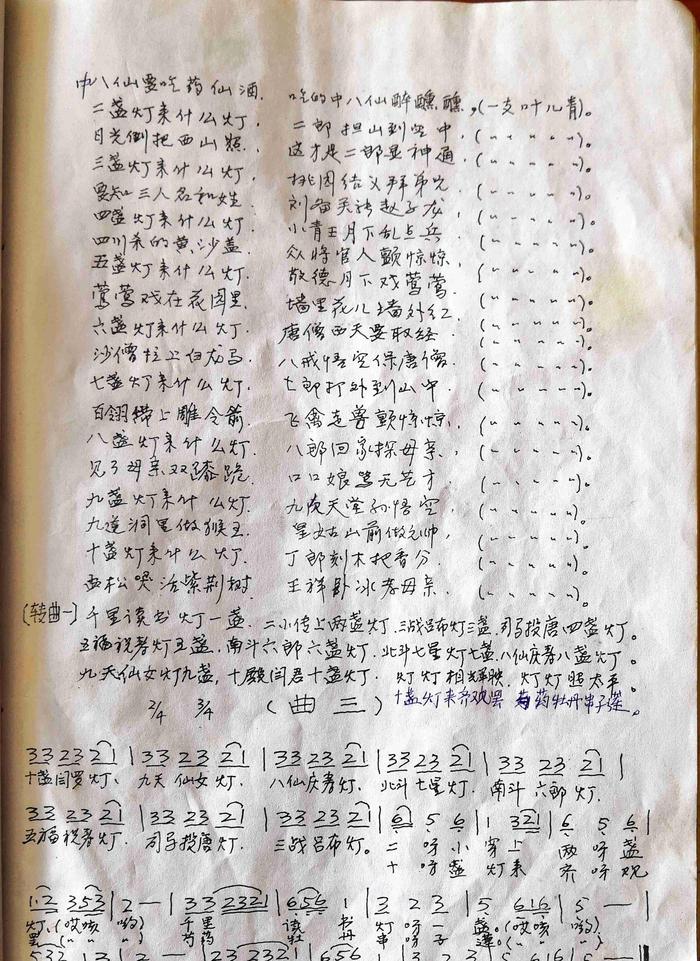 中八仙要吃药仙酒. 吃的中八仙醉醺醺,(一支叶儿青)。
二盏灯来什么灯. 二郎担山到空中(〃〃〃〃〃)。
日光倒把西山 这才是二郎显神通(〃〃〃〃〃)。
三盏灯来什么灯. 桃园结义拜弟兄(〃〃〃〃〃)。
要知三人名和姓. 刘备关张赵子龙,(〃〃〃〃〃)。
四盏灯来什么灯. 小青王月下乱点兵(〃〃〃〃〃)。
四川杀的黄沙盖. 众将官人颤惊惊,(〃〃〃〃〃)。
五盏灯来什么灯. 敬德月下戏莺莺(〃〃〃〃〃)。
莺莺戏在花园里. 墙里花儿墙外红.(〃〃〃〃〃)。
六盏灯来什么灯. 唐僧西天要取经(〃〃〃〃〃)。
沙僧拉上白龙马. 八戒悟空保唐僧.(〃〃〃〃〃)。
七盏灯来什么灯. 七郎打外到山中.(〃〃〃〃〃)。
百翎带上雕令箭. 飞禽走兽颤惊惊.(〃〃〃〃〃)。
八盏灯来什么灯. 八郎回家探母亲.(〃〃〃〃〃)。
见了母亲双膝跪. 口口娘骂无艺才(〃〃〃〃〃)。
九盏灯来什么灯. 九反天堂孙悟空(〃〃〃〃〃)。
九道洞里做猴王. 山前做元帅,(〃〃〃〃〃)。
十盏灯来什么灯. 丁郎刻木把香分.(〃〃〃〃〃)。
哭活紫荆树 王祥卧冰孝母亲.(〃〃〃〃〃)。
[转曲一] 千里读书灯一盏. 二小传上两盏灯.三战吕布灯三盏.司马投唐四盏灯。
五福祝寿灯五盏.南斗六郎六盏灯.北斗七星灯七盏.八仙庆寿八盏灯。
九天仙女灯九盏,十殿闫君十盏灯. 灯灯相辉映.灯灯照太平。
十盏灯来齐观罢 芍药牡丹串子莲。
2/4 3/4 (曲三)
33 23 21 | 33 23 21 | 33 23 21 | 33 23 21 | 33 23 21 |
十盏闫罗灯、 九天仙女灯. 八仙庆寿灯. 北斗七星灯. 南斗六郎灯.
33 23 21 | 33 23 21 | 33 23 21 | 6 5 6 | 1 321 | 6 5 6 |
五福祝寿灯. 司马投唐灯. 三战吕布灯。 二呀小 穿上 两呀盏
十呀盏 灯来 齐呀观
1·2 353 | 2 — | 33 2321 | 656 1 | 3 2 3 | 5 616 | 5 — |
灯.(哎咳 哟) 千里 读书 灯呀一 盏。(哎咳 哟)
罢(〃〃 〃) 芍药 牡丹 串呀子 莲。(〃〃 〃)